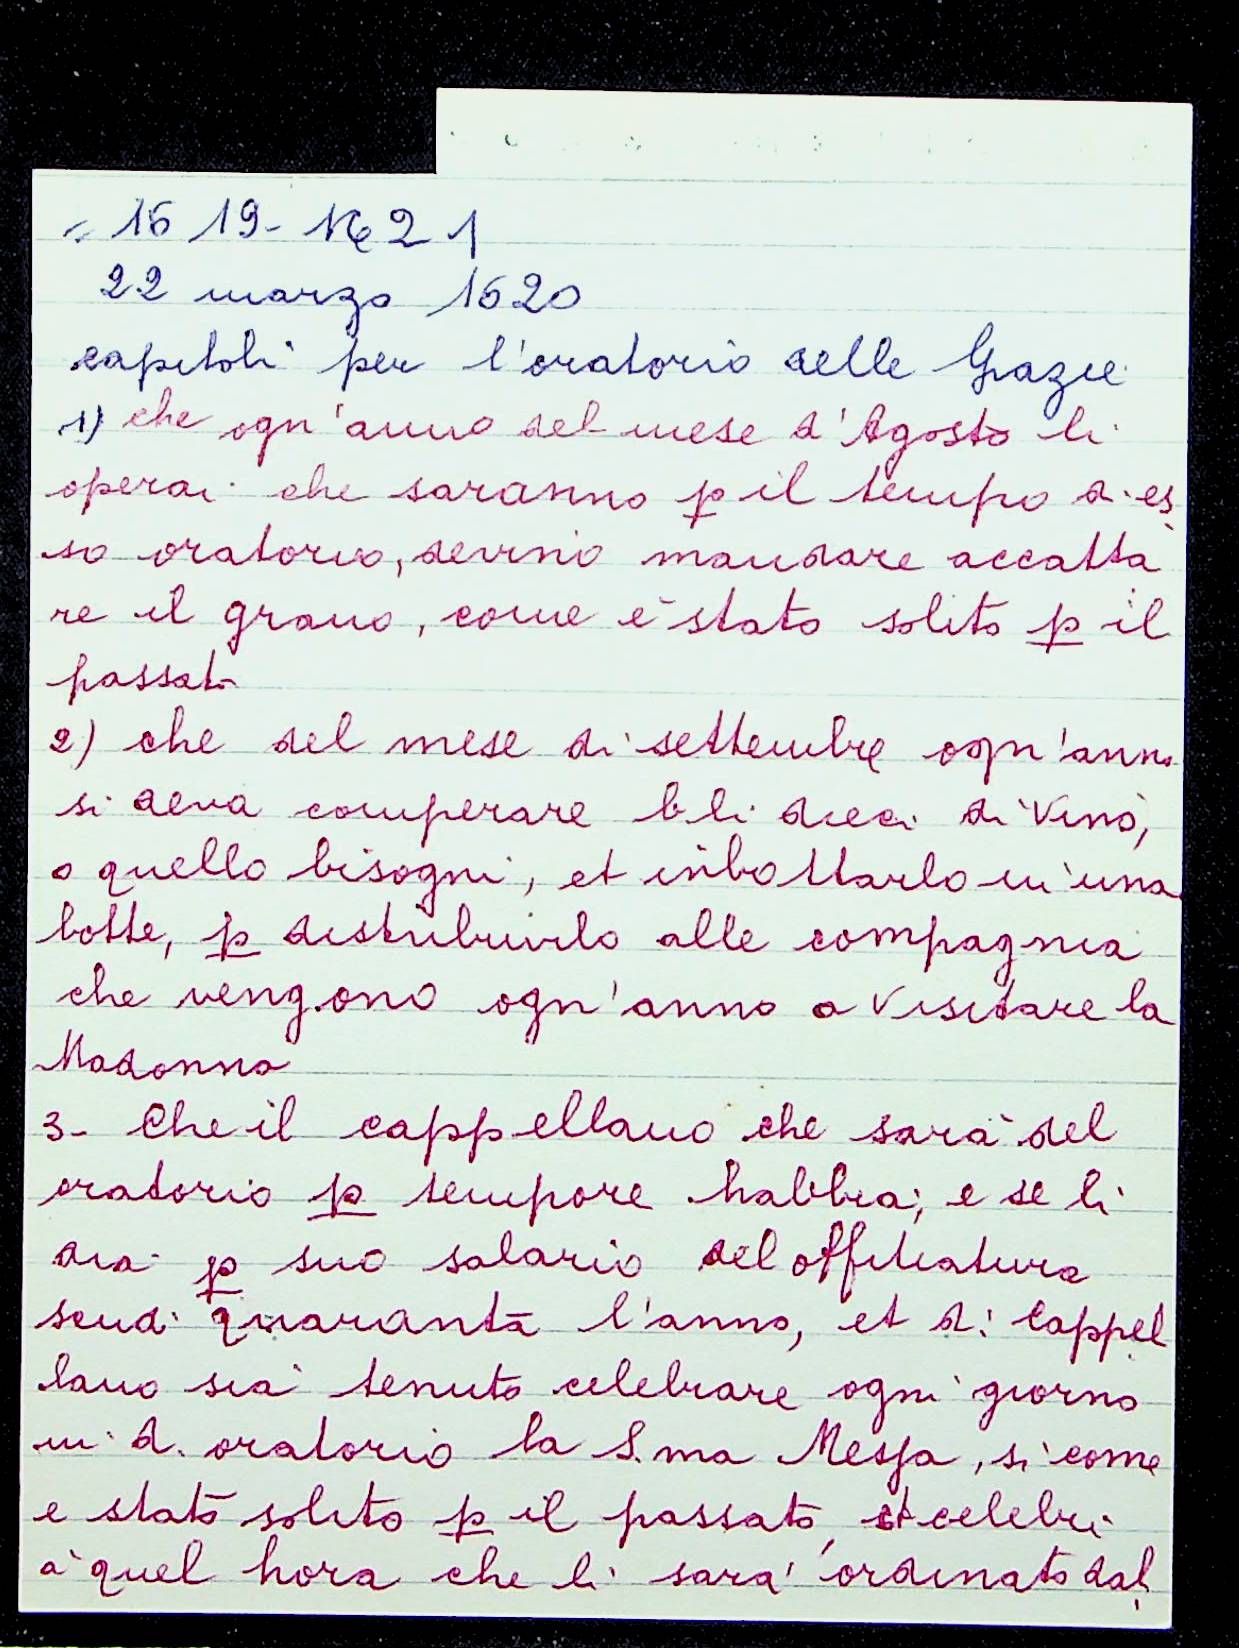 1619- No 21
22 marzo 1620
capitoli per l'oratorio delle Grazie
1) che ogn'anno del mese d'Agosto li
operai che saranno p il tempo di es
so oratorio, devino mandare accatta
re il grano, come è stato solito p il
passato
2) che del mese di settembre ogn'anno
si deva comperare bli dieci di Vino,
o quello bisogni, et inbottarlo in una
botte, p distribuirlo alle compagnia
che vengono ogn'anno a Visitare la
Madonna
3- Che il cappellano che sarà del
oratorio p tempore habbia; e se li
dia p suo salario del offitiatura
scudi quaranta l'anno, et d: Cappel
lano sia tenuto celebrare ogni giorno
in d. oratorio la S.ma Messa, si come
e stato solito p il passato, et celebri
a quel hora che li sarà ordinato dal